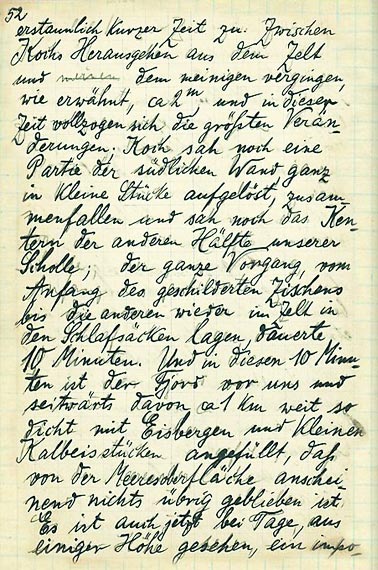 52
erstaunlich kurzer Zeit zu. Zwischen
Kochs Herausgehen aus dem Zelt
und dem meinigen vergingen,
wie erwähnt, ca 2m und in dieser
Zeit vollzogen sich die größten Verän-
derungen. Koch sah noch eine
Partie der südlichen Wand ganz
in kleine Stücke aufgelöst, zusam-
menfallen und sah noch das Ken-
tern der anderen Hälfte unserer
Scholle; der ganze Vorgang, vom
Anfang des geschilderten Zischens
bis die anderen wieder im Zelt in
den Schlafsäcken lagen, dauerte
10 Minuten. Und in diesen 10 Minu-
ten ist der Fjord vor uns und
seitwärts davon ca 1 km weit so
dicht mit Eisbergen und kleinen
Kalbeisstücken angefüllt, daß
von der Meeresoberfläche anschei-
nend nichts übrig geblieben ist.
Es ist auch jetzt bei Tage, aus
einiger Höhe gesehen, ein impo-